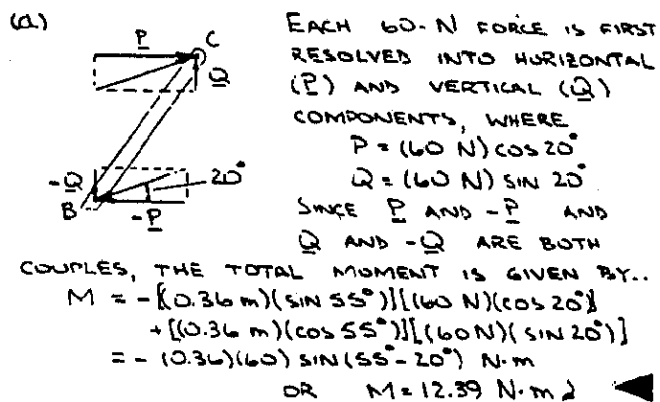 (a)
P C
Q
-Q 20°
B -P
EACH 60-N FORCE IS FIRST
RESOLVED INTO HORIZONTAL
(P) AND VERTICAL (Q)
COMPONENTS, WHERE
P = (60 N) COS 20°
Q = (60 N) SIN 20°
SINCE P AND -P AND
Q AND -Q ARE BOTH
COUPLES, THE TOTAL MOMENT IS GIVEN BY..
M = -[(0.36 m)(SIN 55°)][(60 N)(COS 20°)]
+[(0.36 m)(COS 55°)][(60N)(SIN 20°)]
= -(0.36)(60) SIN(55°-20°) N·m
OR M = 12.39 N·m ↲